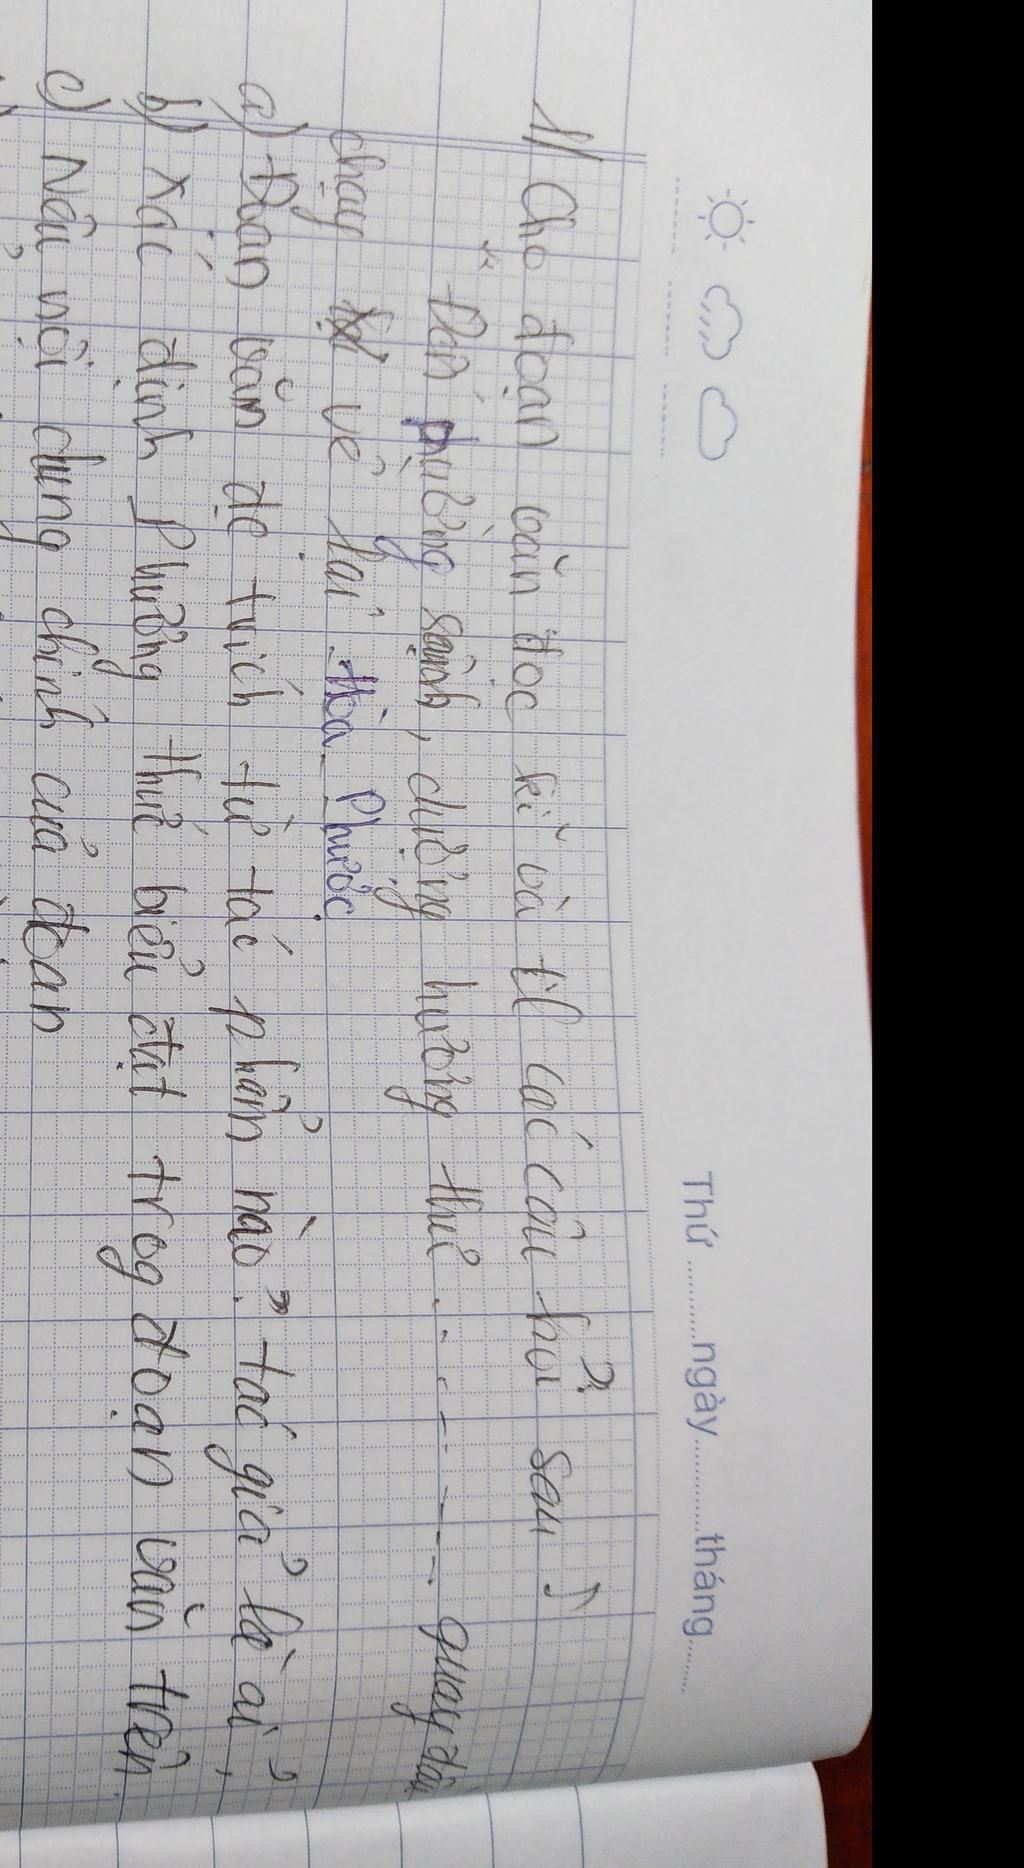 Thứ ............ngày.............tháng........
1/ Cho đoạn văn đọc kĩ và tl các câu hỏi sau
"Đến phường sạnh, dượng hương thư . - . - - - - - quay đầu
chạy về lại Hòa Phước
a) Đoạn văn đc trích từ tác phẩm nào. tác giả là ai,
b) Xác định Phương thức biểu đạt trog đoạn văn trên
c) Nêu nội dung chính của đoan